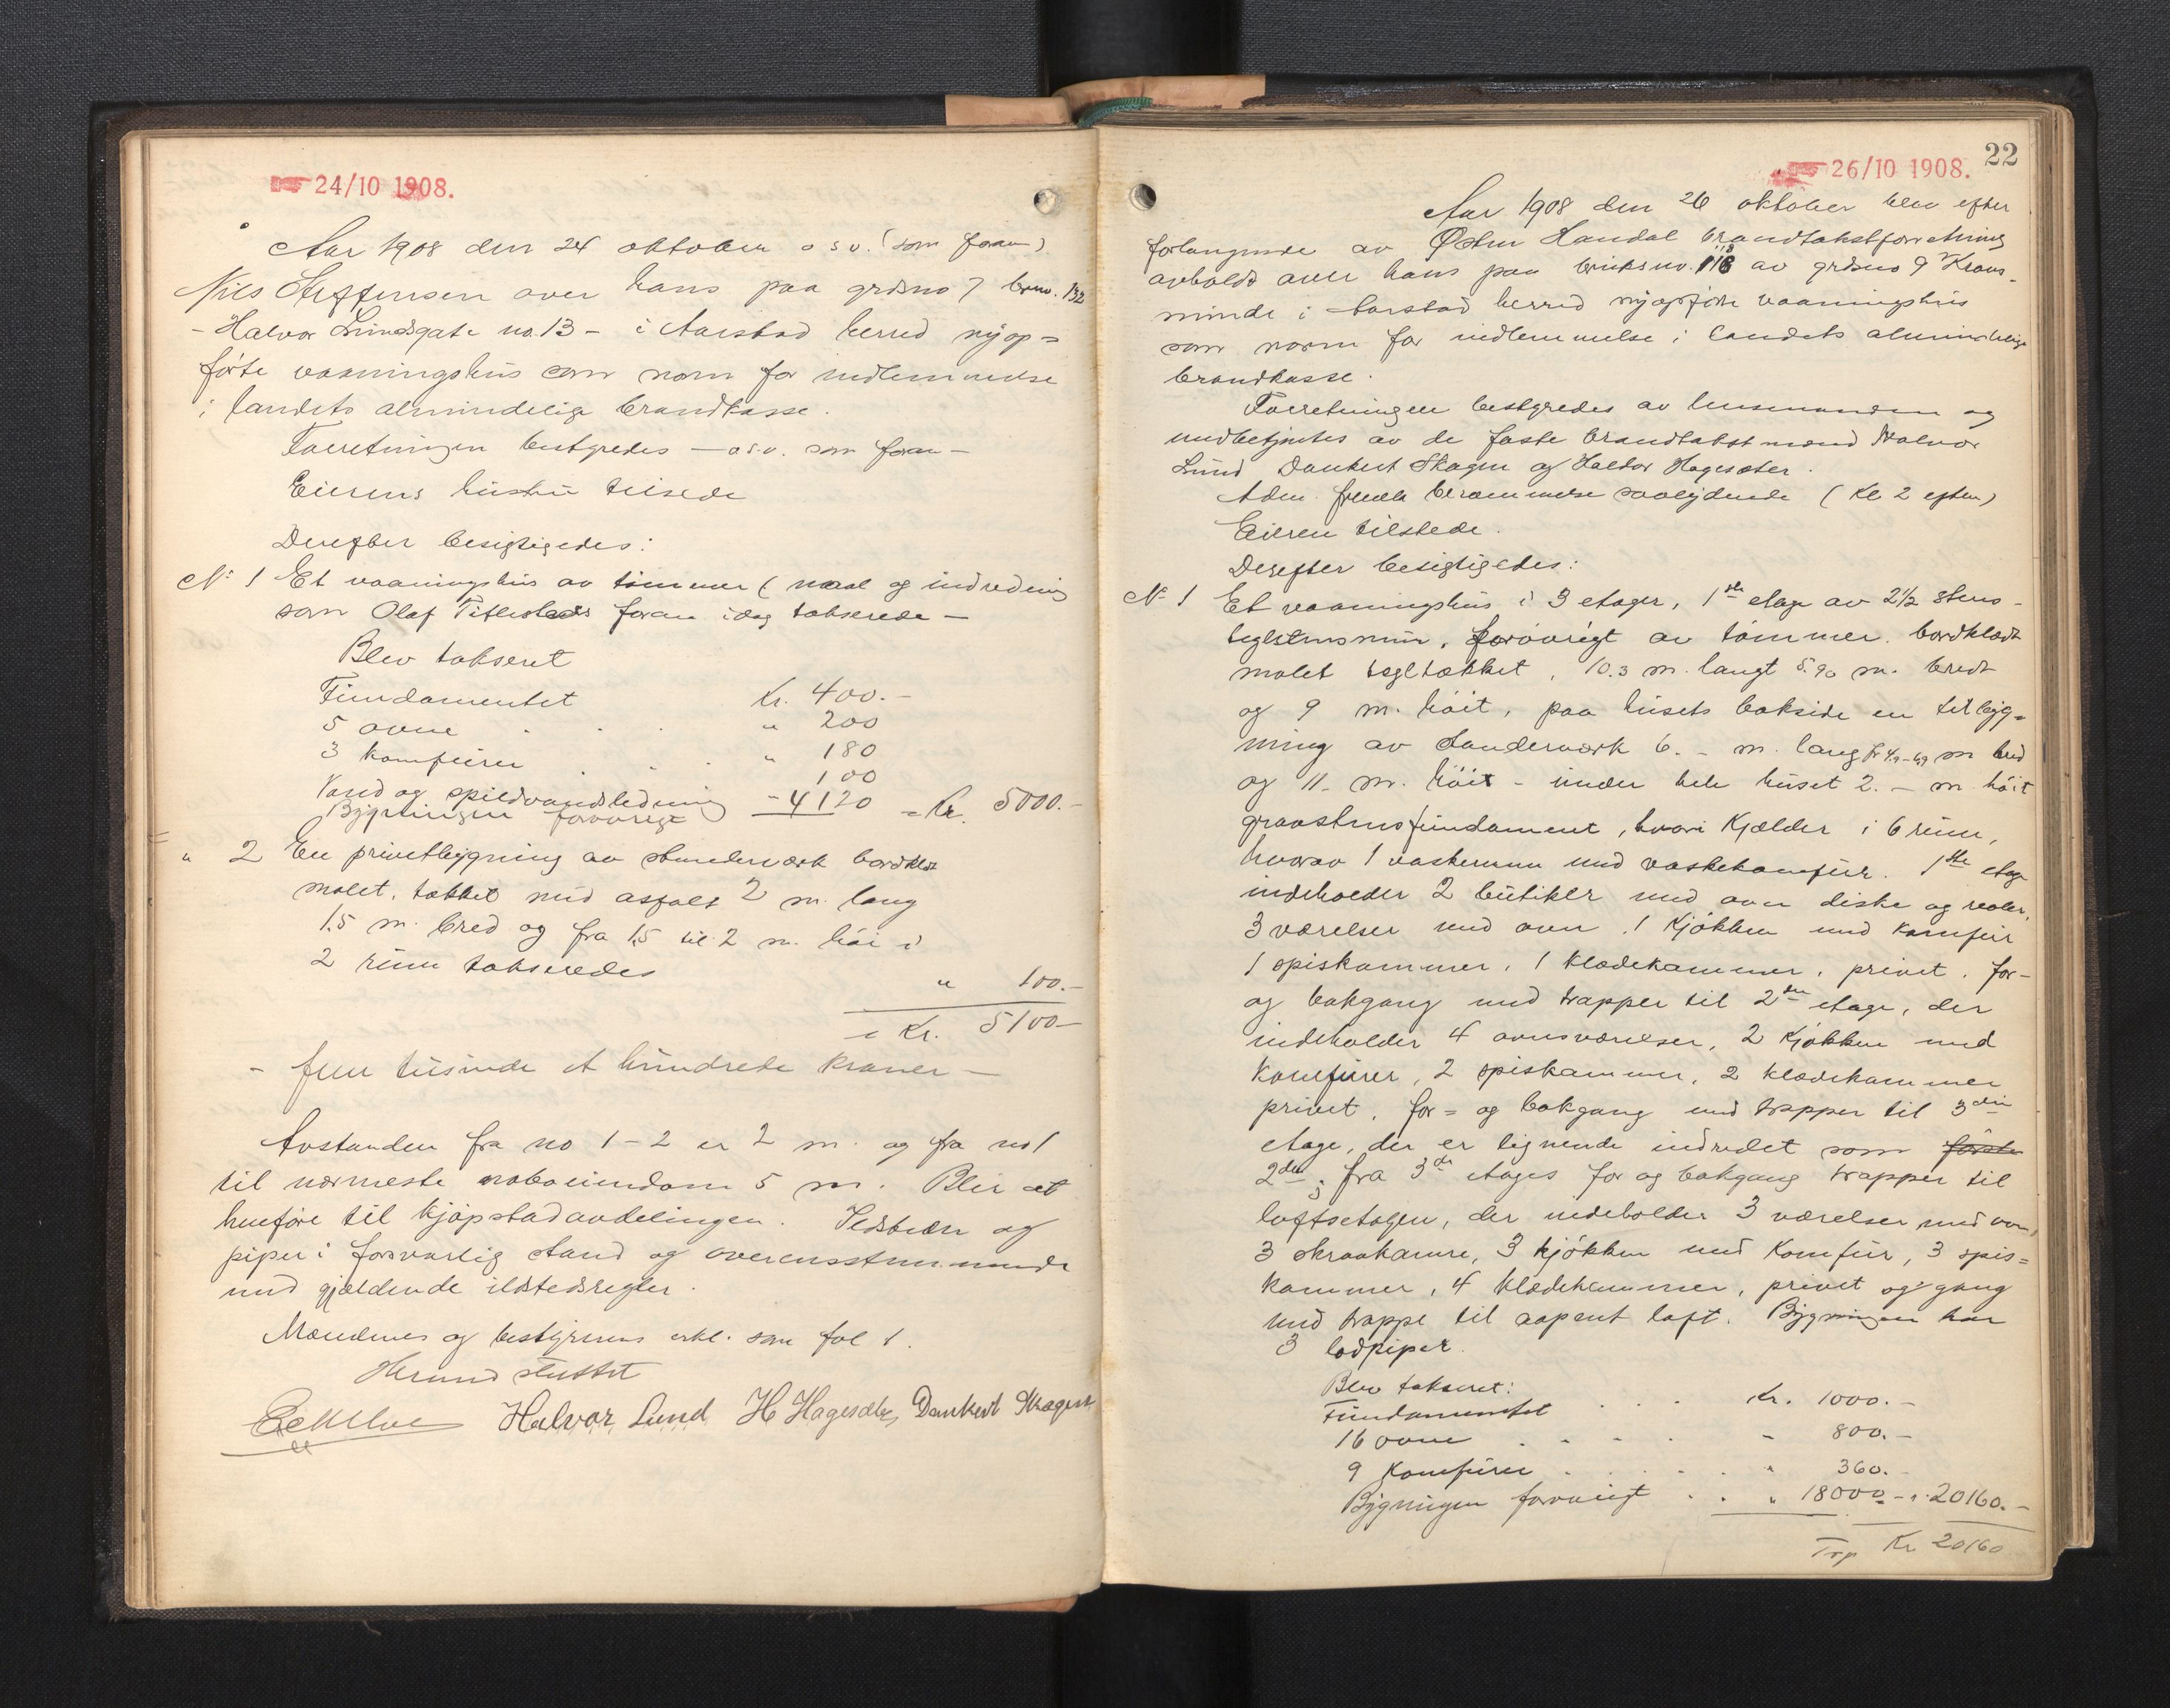 24/10 1908.
Aar 1908 den 24 oktober o s v. (som foran)
Nils Steffensen over hans paa grdsno 7 brno. 132
- Halvor Lundsgate no. 13 - i Aarstad herred nyop=
førte vaaningshus som norm for indlemmelse
i landets almindelige brandkasse.
Forretningen bestyredes - o s. v. som foran -
Eierens hustru tilstede
Derefter besigtigedes:
No 1 Et vaaningshus av tømmer ( maal og indredning
som Olaf Titlestads foran idag takserede -
Blev taksert
Fundamentet Kr. 400.-
5 ovne . . . " 200
3 komfurer . . . " 180
Vand og spildvandsledning 100
Bygningen forøvrigt - 4120 = Kr. 5000.-
" 2 En privetbygning av stenderværk bordklædt
malet, tækket med asfalt 2 m. lang
1.5 m. bred og fra 1,5 til 2 m. høi i
2 rum takseredes " 100.-
= Kr. 5100-
- fem tusinde et hundrede kroner -
Avstanden fra no 1 - 2 er 2 m. og fra no 1
til nærmeste naboeiendom 5 m. Blir at
henføre til kjøpstadavdelingen. Ildsteder og
piper i forsvarlig stand og overensstemmende
med gjældende ildstedsregler.
Mændenes og bestyrerens erkl. som fol 1.
Hermed sluttet
Halvor Lund H Hagesæter Dankert Skagen
22
26/10 1908.
Aar 1908 den 26 oktober blev efter
forlangende av Østen Handal brandtakstforretning
avholdt over hans paa bruksno. 118 av grdsno 9 Krons-
minde i Aarstad herred nyopførte vaaningshus
som norm for indlemmelse i landets almindelige
brandkasse.
Forretningen bestyredes av lensmanden og
medbetjentes av de faste brandtakstmænd Halvor
Lund Dankert Skagen og Haldor Hagesæter.
Adm. fremla berammelse saalydende ( Kl 2 efterm)
Eieren tilstede.
Derefter besigtigedes:
No 1 Et vaaningshus i 3 etager, 1ste etage av 2½ stens-
teglstensmur, forøvrigt av tømmer. bordklædt
malet tegltækket, 10.3 m. langt 5.90 m. bredt
og 9 m. høit, paa husets bakside en tilbyg=
ning av stenderværk 6. - m. lang fr 4.9-6.9 m bred
og 11. m. høit - under hele huset 2. - m. høit
graastensfundament, hvori Kjælder i 6 rum,
hvorav 1 vaskerum med vaskekomfur. 1ste etage
indeholder 2 butikker med ovn diske og reoler,
3 værelser med ovn. 1 Kjøkken med Komfur
1 spiskammer, 1 klædekammer, privet. for-
og bakgang med trapper til 2den etage, der
indeholder 4 ovnsværelser, 2 Kjøkken med
Komfurer, 2 spiskammer, 2 klædekammer
privet. for= og bakgang med trapper til 3die
etage, der er lignende indredet som første
2den; fra 3die etages for og bakgang trapper til
loftsetagen, der indeholder 3 værelser med ovn,
3 skraakamre, 3 kjøkken med Komfur, 3 spis=
kammer, 4 klædekammer, privet og gang
med trappe til aapent loft. Bygningen har
3 lodpiper.
Blev taksert:
Fundamentet . . . Kr. 1000.-
16 ovne . . . . " 800.-
9 Komfurer . . . . " 360.-
Bygningen forøvrigt . . " 18000 - " 20160.-
Trp Kr 20160